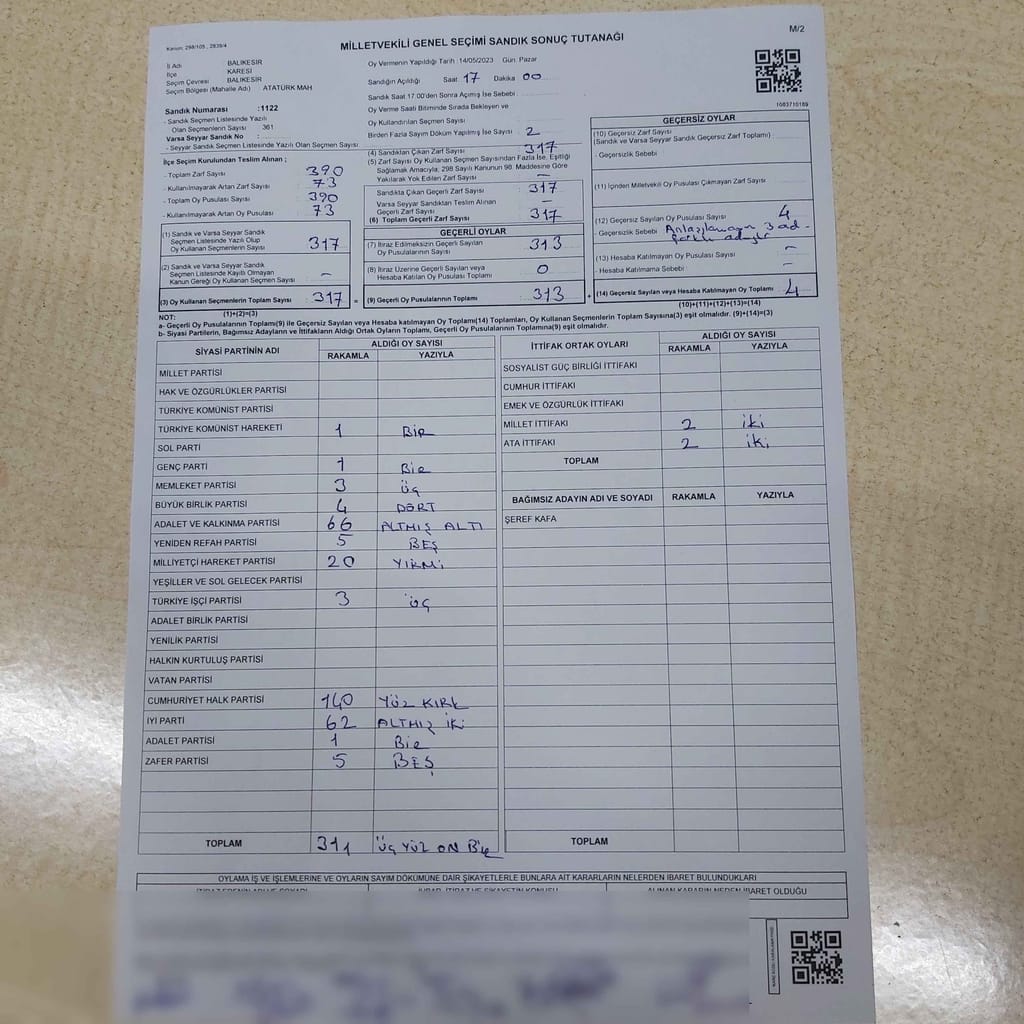 M/2
Kanun: 298/105 , 2839/4
MİLLETVEKİLİ GENEL SEÇİMİ SANDIK SONUÇ TUTANAĞI
İl Adı BALIKESİR
İlçe KARESİ
Seçim Çevresi BALIKESİR
Seçim Bölgesi (Mahalle Adı) ATATÜRK MAH
Sandık Numarası :1122
- Sandık Seçmen Listesinde Yazılı
Olan Seçmenlerin Sayısı 361
Varsa Seyyar Sandık No :
- Seyyar Sandık Seçmen Listesinde Yazılı Olan Seçmen Sayısı
Oy Vermenin Yapıldığı Tarih :14/05/2023 Gün: Pazar
Sandığın Açıldığı Saat: 17 Dakika 00
Sandık Saat 17:00'den Sonra Açılmış İse Sebebi:
Oy Verme Saati Bitiminde Sırada Bekleyen ve
Oy Kullandırılan Seçmen Sayısı
Birden Fazla Sayım Döküm Yapılmış İse Sayısı 2
1083710189
İlçe Seçim Kurulundan Teslim Alınan ;
- Toplam Zarf Sayısı 390
- Kullanılmayarak Artan Zarf Sayısı 73
- Toplam Oy Pusulası Sayısı 390
- Kullanılmayarak Artan Oy Pusulası 73
(1) Sandık ve Varsa Seyyar Sandık
Seçmen Listesinde Yazılı Olup
Oy Kullanan Seçmenlerin Sayısı 317
(2) Sandık ve Varsa Seyyar Sandık
Seçmen Listesinde Kayıtlı Olmayan
Kanun Gereği Oy Kullanan Seçmen Sayısı –
(3) Oy Kullanan Seçmenlerin Toplam Sayısı 317 =
(1)+(2)=(3)
(4) Sandıktan Çıkan Zarf Sayısı 317
(5) Zarf Sayısı Oy Kullanan Seçmen Sayısından Fazla İse, Eşitliği
Sağlamak Amacıyla; 298 Sayılı Kanunun 98. Maddesine Göre
Yakılarak Yok Edilen Zarf Sayısı –
Sandıkta Çıkan Geçerli Zarf Sayısı 317
Varsa Seyyar Sandıktan Teslim Alınan
Geçerli Zarf Sayısı –
(6) Toplam Geçerli Zarf Sayısı 317
GEÇERLİ OYLAR
(7) İtiraz Edilmeksizin Geçerli Sayılan
Oy Pusulalarının Sayısı 313
(8) İtiraz Üzerine Geçerli Sayılan veya
Hesaba Katılan Oy Pusulası Toplamı 0
(9) Geçerli Oy Pusulalarının Toplamı 313 +
GEÇERSİZ OYLAR
(10) Geçersiz Zarf Sayısı
(Sandık ve Varsa Seyyar Sandık Geçersiz Zarf Toplamı)
- Geçersizlik Sebebi
(11) İçinden Milletvekili Oy Pusulası Çıkmayan Zarf Sayısı
(12) Geçersiz Sayılan Oy Pusulası Sayısı 4
- Geçersizlik Sebebi
(13) Hesaba Katılmayan Oy Pusulası Sayısı –
- Hesaba Katılmama Sebebi –
(14) Geçersiz Sayılan veya Hesaba Katılmayan Oy Toplamı 4
(10)+(11)+(12)+(13)=(14)
NOT:
a- Geçerli Oy Pusulalarının Toplamı(9) ile Geçersiz Sayılan veya Hesaba katılmayan Oy Toplamı(14) Toplamları, Oy Kullanan Seçmenlerin Toplam Sayısına(3) eşit olmalıdır. (9)+(14)=(3)
b- Siyasi Partilerin, Bağımsız Adayların ve İttifakların Aldığı Ortak Oyların Toplamı, Geçerli Oy Pusulalarının Toplamına(9) eşit olmalıdır.
SİYASİ PARTİNİN ADI ALDIĞI OY SAYISI
RAKAMLA YAZIYLA
MİLLET PARTİSİ
HAK VE ÖZGÜRLÜKLER PARTİSİ
TÜRKİYE KOMÜNİST PARTİSİ
TÜRKİYE KOMÜNİST HAREKETİ 1 BİR
SOL PARTİ
GENÇ PARTİ 1 Bir
MEMLEKET PARTİSİ 3 üç
BÜYÜK BİRLİK PARTİSİ 4 DÖRT
ADALET VE KALKINMA PARTİSİ 66 ALTMIŞ ALTI
YENİDEN REFAH PARTİSİ 5 BEŞ
MİLLİYETÇİ HAREKET PARTİSİ 20 YİRMİ
YEŞİLLER VE SOL GELECEK PARTİSİ
TÜRKİYE İŞÇİ PARTİSİ 3 üç
ADALET BİRLİK PARTİSİ
YENİLİK PARTİSİ
HALKIN KURTULUŞ PARTİSİ
VATAN PARTİSİ
CUMHURİYET HALK PARTİSİ 140 YÜZ KIRK
İYİ PARTİ 62 ALTMIŞ İKİ
ADALET PARTİSİ 1 Bir
ZAFER PARTİSİ 5 BEŞ
TOPLAM 311 ÜÇ YÜZ ON BİR
İTTİFAK ORTAK OYLARI ALDIĞI OY SAYISI
RAKAMLA YAZIYLA
SOSYALİST GÜÇ BİRLİĞİ İTTİFAKI
CUMHUR İTTİFAKI
EMEK VE ÖZGÜRLÜK İTTİFAKI
MİLLET İTTİFAKI 2 iki
ATA İTTİFAKI 2 iki
TOPLAM
BAĞIMSIZ ADAYIN ADI VE SOYADI RAKAMLA YAZIYLA
ŞEREF KAFA
TOPLAM
OYLAMA İŞ VE İŞLEMLERİNE VE OYLARIN SAYIM DÖKÜMÜNE DAİR ŞİKAYETLERLE BUNLARA AİT KARARLARIN NELERDEN İBARET BULUNDUKLARI
ALINAN KARARIN NEDEN İBARET OLDUĞU